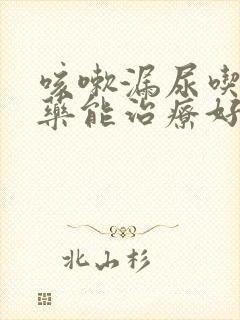 咳嗽漏尿喫
藥能治療好
北山杉